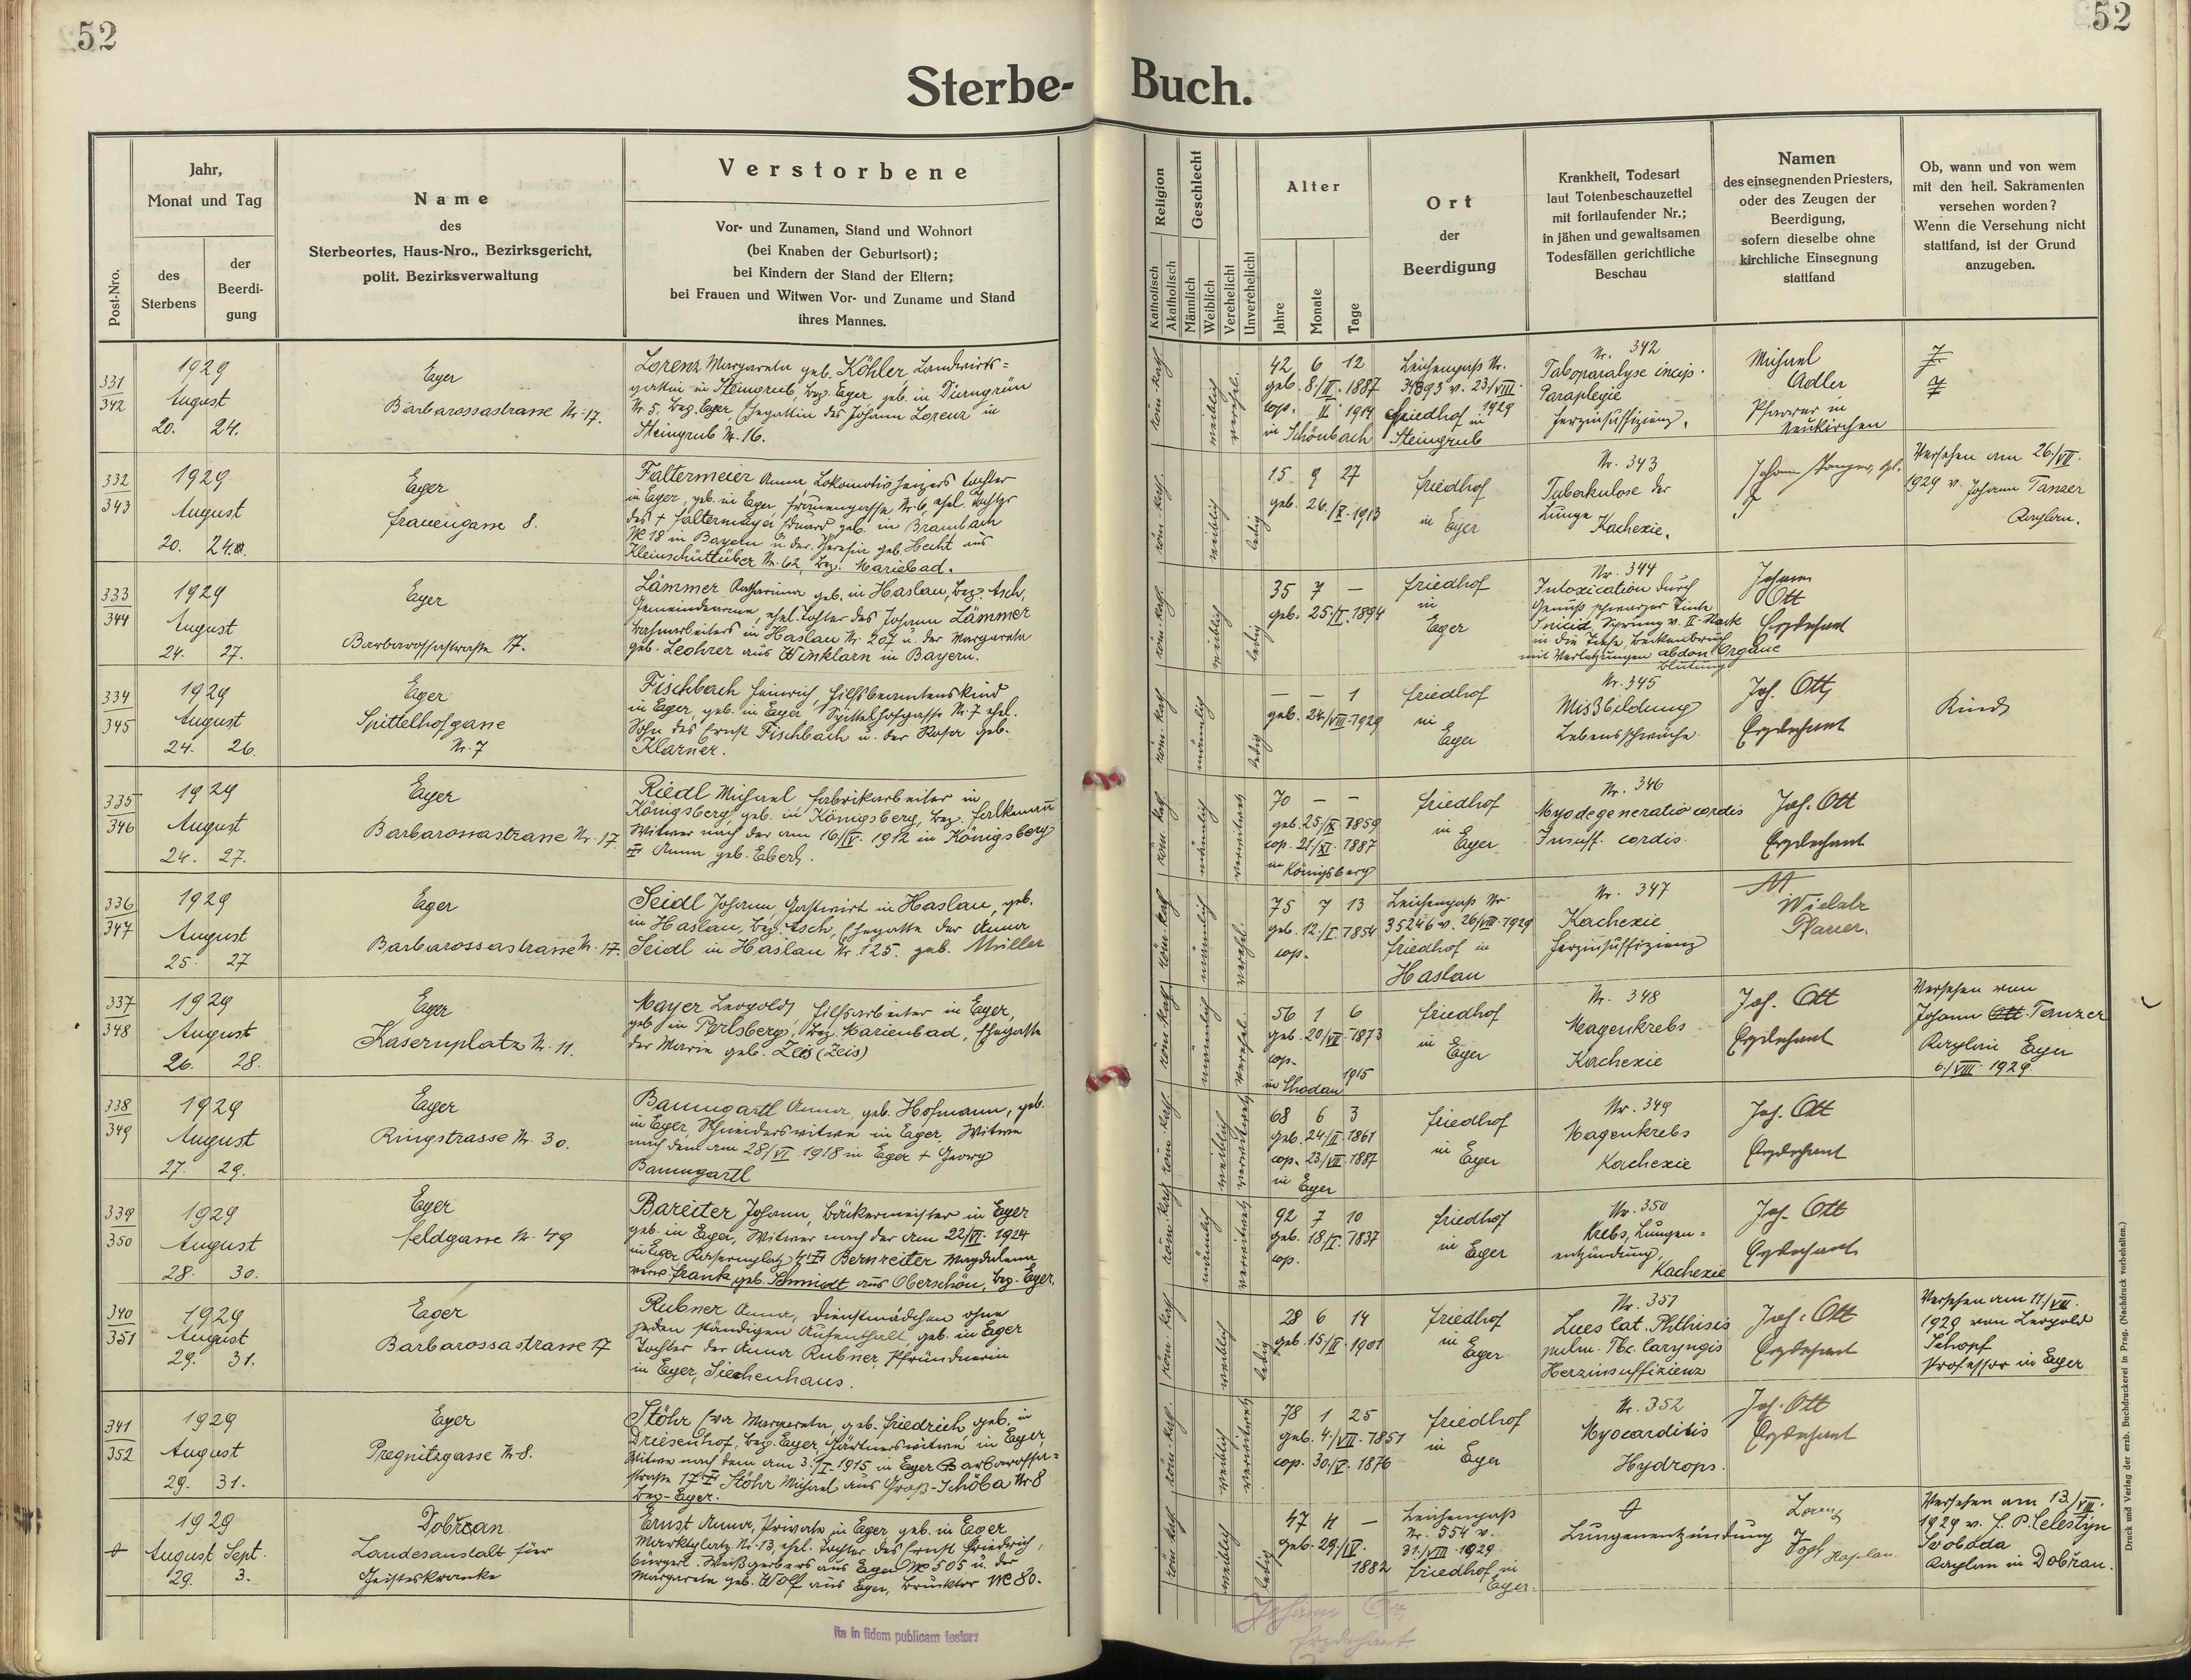 52
52
Sterbe-Buch.
Post-Nro.
Jahr,
Monat und Tag
des
Sterbens
der
Beerdi-
gung
Name
des
Sterbeortes, Haus-Nro., Bezirksgericht,
polit. Bezirksverwaltung
Verstorbene
Vor- und Zunamen, Stand und Wohnort
(bei Knaben der Geburtsort);
bei Kindern der Stand der Eltern;
bei Frauen und Witwen Vor- und Zuname und Stand
ihres Mannes.
Religion
Katholisch
Akatholisch
Geschlecht
Männlich
Weiblich
Verehelicht
Unverehelicht
Alter
Jahre
Monate
Tage
Ort
der
Beerdigung
Krankheit, Todesart
laut Totenbeschauzettel
mit fortlaufender Nr.;
in jähen und gewaltsamen
Todesfällen gerichtliche
Beschau
Namen
des einsegnenden Priesters,
oder des Zeugen der
Beerdigung,
sofern dieselbe ohne
kirchliche Einsegnung
stattfand
Ob, wann und von wem
mit den heil. Sakramenten
versehen worden?
Wenn die Versehung nicht
stattfand, ist der Grund
anzugeben.
331
342
1929
August
20. 24.
Eger
Barbarossastrasse Nr. 17.
Lorenz Margareta geb. Köhler Landwirts=
gattin in Steingrub, Bez. Eger, geb. in Dürngrün
Nr. 5, Bez. Eger, Ehegattin des Johann Lorenz in
Steingrub Nr. 16.
röm. kath.
weiblich
verehel.
42 6 12
geb. 8./II. 1887
cop. II 1914
in Schönbach
Leichenpass Nr.
v. 23/VIII.
1929
Friedhof in
Steingrub
Nr. 342
Taboparalyse incip.
Paraplegie
Herzinsuffizienz.
Michael
Adler
Pfarrer in
Neukirchen
332
343
1929
August
20. 24.
Eger
Frauengasse 8.
Faltermeier Anna, Lokomotivheizers Tochter
in Eger, geb. in Eger, Frauengasse Nr. 6, ehel. Tochter
des + Faltermayer Eduard geb. in Brambach
No 18 in Bayern u. der Theresia geb. Hecht aus
Kleinschüttüber Nr. 62, Bez. Marienbad.
röm. kath.
weiblich
ledig
15 9 27
geb. 26./X. 1913
Friedhof
in Eger
Nr. 343
Tuberkulose der
Lunge
Kachexie.
Johann
Versehen am 26./VII.
1929 v. Johann Tanzer
Kaplan.
333
344
1929
August
24. 27.
Eger
Barbarossastrasse 17.
Lämmer Katharina geb. in Haslau, Bez. Asch,
Gemeindearme, ehel. Tochter des Johann Lämmer
Bahnarbeiters in Haslau Nr. 202 u. der Margareta
geb. Leohrer aus Winklarn in Bayern.
röm. kath.
weiblich
ledig
35 7 —
geb. 25./I. 1894
Friedhof
in
Eger
Nr. 344
Intoxication durch
Genuß schwarzer Tinte
Suicid, Sprung v. II. Stock
in die Tiefe, Beckenbruch
mit Verletzungen abdom. Organe
Blutung
Johann
Ott
Erzdechant
334
345
1929
August
24. 26.
Eger
Spittelhofgasse
Nr. 7
Fischbach Heinrich, Hilfsbeamtenskind
in Eger, geb. in Eger, Spittelhofgasse Nr. 7 ehel.
Sohn des Ernst Fischbach u. der Rosa geb.
Klarner.
röm. kath.
männlich
ledig
— — 1
geb. 24./VIII. 1929
Friedhof
in
Eger
Nr. 345
Mißbildung
Lebensschwäche.
Joh. Ott,
Erzdechant
Kind
335
346
1929
August
24. 27.
Eger
Barbarossastrasse Nr. 17.
Riedl Michael, Fabrikarbeiter in
Königsberg, geb. in Königsberg, Bez. Falkenau
Witwer nach der am 16/IV. 1912 in Königsberg
+ Anna geb. Eberl.
röm. kath.
männlich
verwitwet
70 — —
geb. 25/IX 1859
cop. 21/XI. 1887
in Königsberg
Friedhof
in
Eger
Nr. 346
Myodegeneratio cordis
Insuff. cordis.
Joh. Ott
Erzdechant
336
347
1929
August
25. 27
Eger
Barbarossastrasse Nr. 17.
Seidl Johann, Gastwirt in Haslau, geb.
in Haslau, Bez. Asch, Ehegatte der Anna
Seidl in Haslau Nr. 125. geb. Müller
röm. kath.
männlich
verehel.
75 7 13
geb. 12./I. 1854
cop.
Leichenpass Nr.
35246 v. 26/VIII. 1929
Friedhof in
Haslau
Nr. 347
Kachexie
Herzinsuffizienz
Pfarrer.
337
348
1929
August
26. 28.
Eger
Kasernplatz Nr. 11.
Mayer Leopold, Hilfsarbeiter in Eger,
geb. in Perlsberg, Bez. Marienbad, Ehegatte
der Marie geb. Zeis (Zeis)
röm. kath.
männlich
verehel.
56 1 6
geb. 20/VII. 1873
cop.
1915
in Chodau
Friedhof
in
Eger
Nr. 348
Magenkrebs
Kachexie
Joh. Ott
Erzdechant
Versehen von
Johann Ott Tanzer
Kaplan Eger
6./VIII. 1929.
338
349
1929
August
27. 29.
Eger
Ringstrasse Nr. 30.
Baumgartl Anna, geb. Hofmann, geb.
in Eger, Schneiderswitwe in Eger, Witwe
nach dem am 28/VI. 1918 in Eger + Georg
Baumgartl
röm. kath.
weiblich
verwitwet
68 6 3
geb. 24/II. 1861
cop. 23./VII. 1887
in Eger
Friedhof
in
Eger
Nr. 349
Magenkrebs
Kachexie
Joh. Ott
Erzdechant
339
350
1929
August
28. 30.
Eger
Feldgasse Nr. 49
Bareiter Johann, Bäckermeister in Eger
geb. in Eger, Witwer nach der am 22/VI. 1924
in Eger Kasernplatz + Bernreiter Magdalena
verw. Frank, geb. Schmidt aus Oberschön, Bez. Eger.
röm. kath.
männlich
verwitwet
92 7 10
geb. 18/I. 1837
cop.
Friedhof
in Eger
Nr. 350
Krebs, Lungen=
entzündung,
Kachexie
Joh. Ott
Erzdechant
340
351
1929
August
29. 31.
Eger
Barbarossastrasse 17
Rubner Anna, Dienstmädchen ohne
jeden ständigen Aufenthalt, geb. in Eger
Tochter der Anna Rubner, Pfründnerin
in Eger, Siechenhaus.
röm. kath.
weiblich
ledig
28 6 14
geb. 15/II. 1901
Friedhof
in
Eger
Nr. 351
Lues lat. Phthisis
pulm. Tbc. laryngis
Herzinsuffizienz
Joh. Ott
Erzdechant
Versehen am 11/VIII.
1929 von Leopold
Schopf
Professor in Eger
341
352
1929
August
29. 31.
Eger
Pregnitzgasse Nr. 8.
Stöhr Eva Margareta, geb. Friedrich, geb. in
Driesenhof, Bez. Eger, Gärtnerswitwe in Eger,
Witwe nach dem am 3./I. 1915 in Eger Barbarossa=
strasse 17 + Stöhr Michael aus Groß-Schöba Nr 8
Bez. Eger.
röm. kath.
weiblich
verwitwet
78 1 25
geb. 4./VII. 1851
cop. 30/V. 1876
Friedhof
in
Eger
Nr. 352
Myocarditis
Hydrops.
Joh. Ott
Erzdechant
1929
August Sept.
29. 3.
Dobřan
Landesanstalt für
Geisteskranke
Ernst Anna, Private in Eger, geb. in Eger
Marktplatz Nr. 13, ehel. Tochter des Ernst Friedrich,
bürgerl. Weißgerbers aus Eger No 505 u. der
Margareta geb. Wolf aus Eger, Brucktor No 80.
röm. kath.
weiblich
ledig
47 4 —
geb. 29/IV.
1882
Leichenpass
Nr. 554 v.
31./VIII 1929
Friedhof in
Eger.
Lungenentzündung
Lorenz
Vogl Kaplan.
Versehen am 13./VIII.
1929 v. P. Celestyn
Svoboda
Kaplan in Dobřan.
ita in fidem publicam testor:
Johann Ott
Erzdechant.
Druck und Verlag der erzb. Buchdruckerei in Prag. (Nachdruck vorbehalten.)